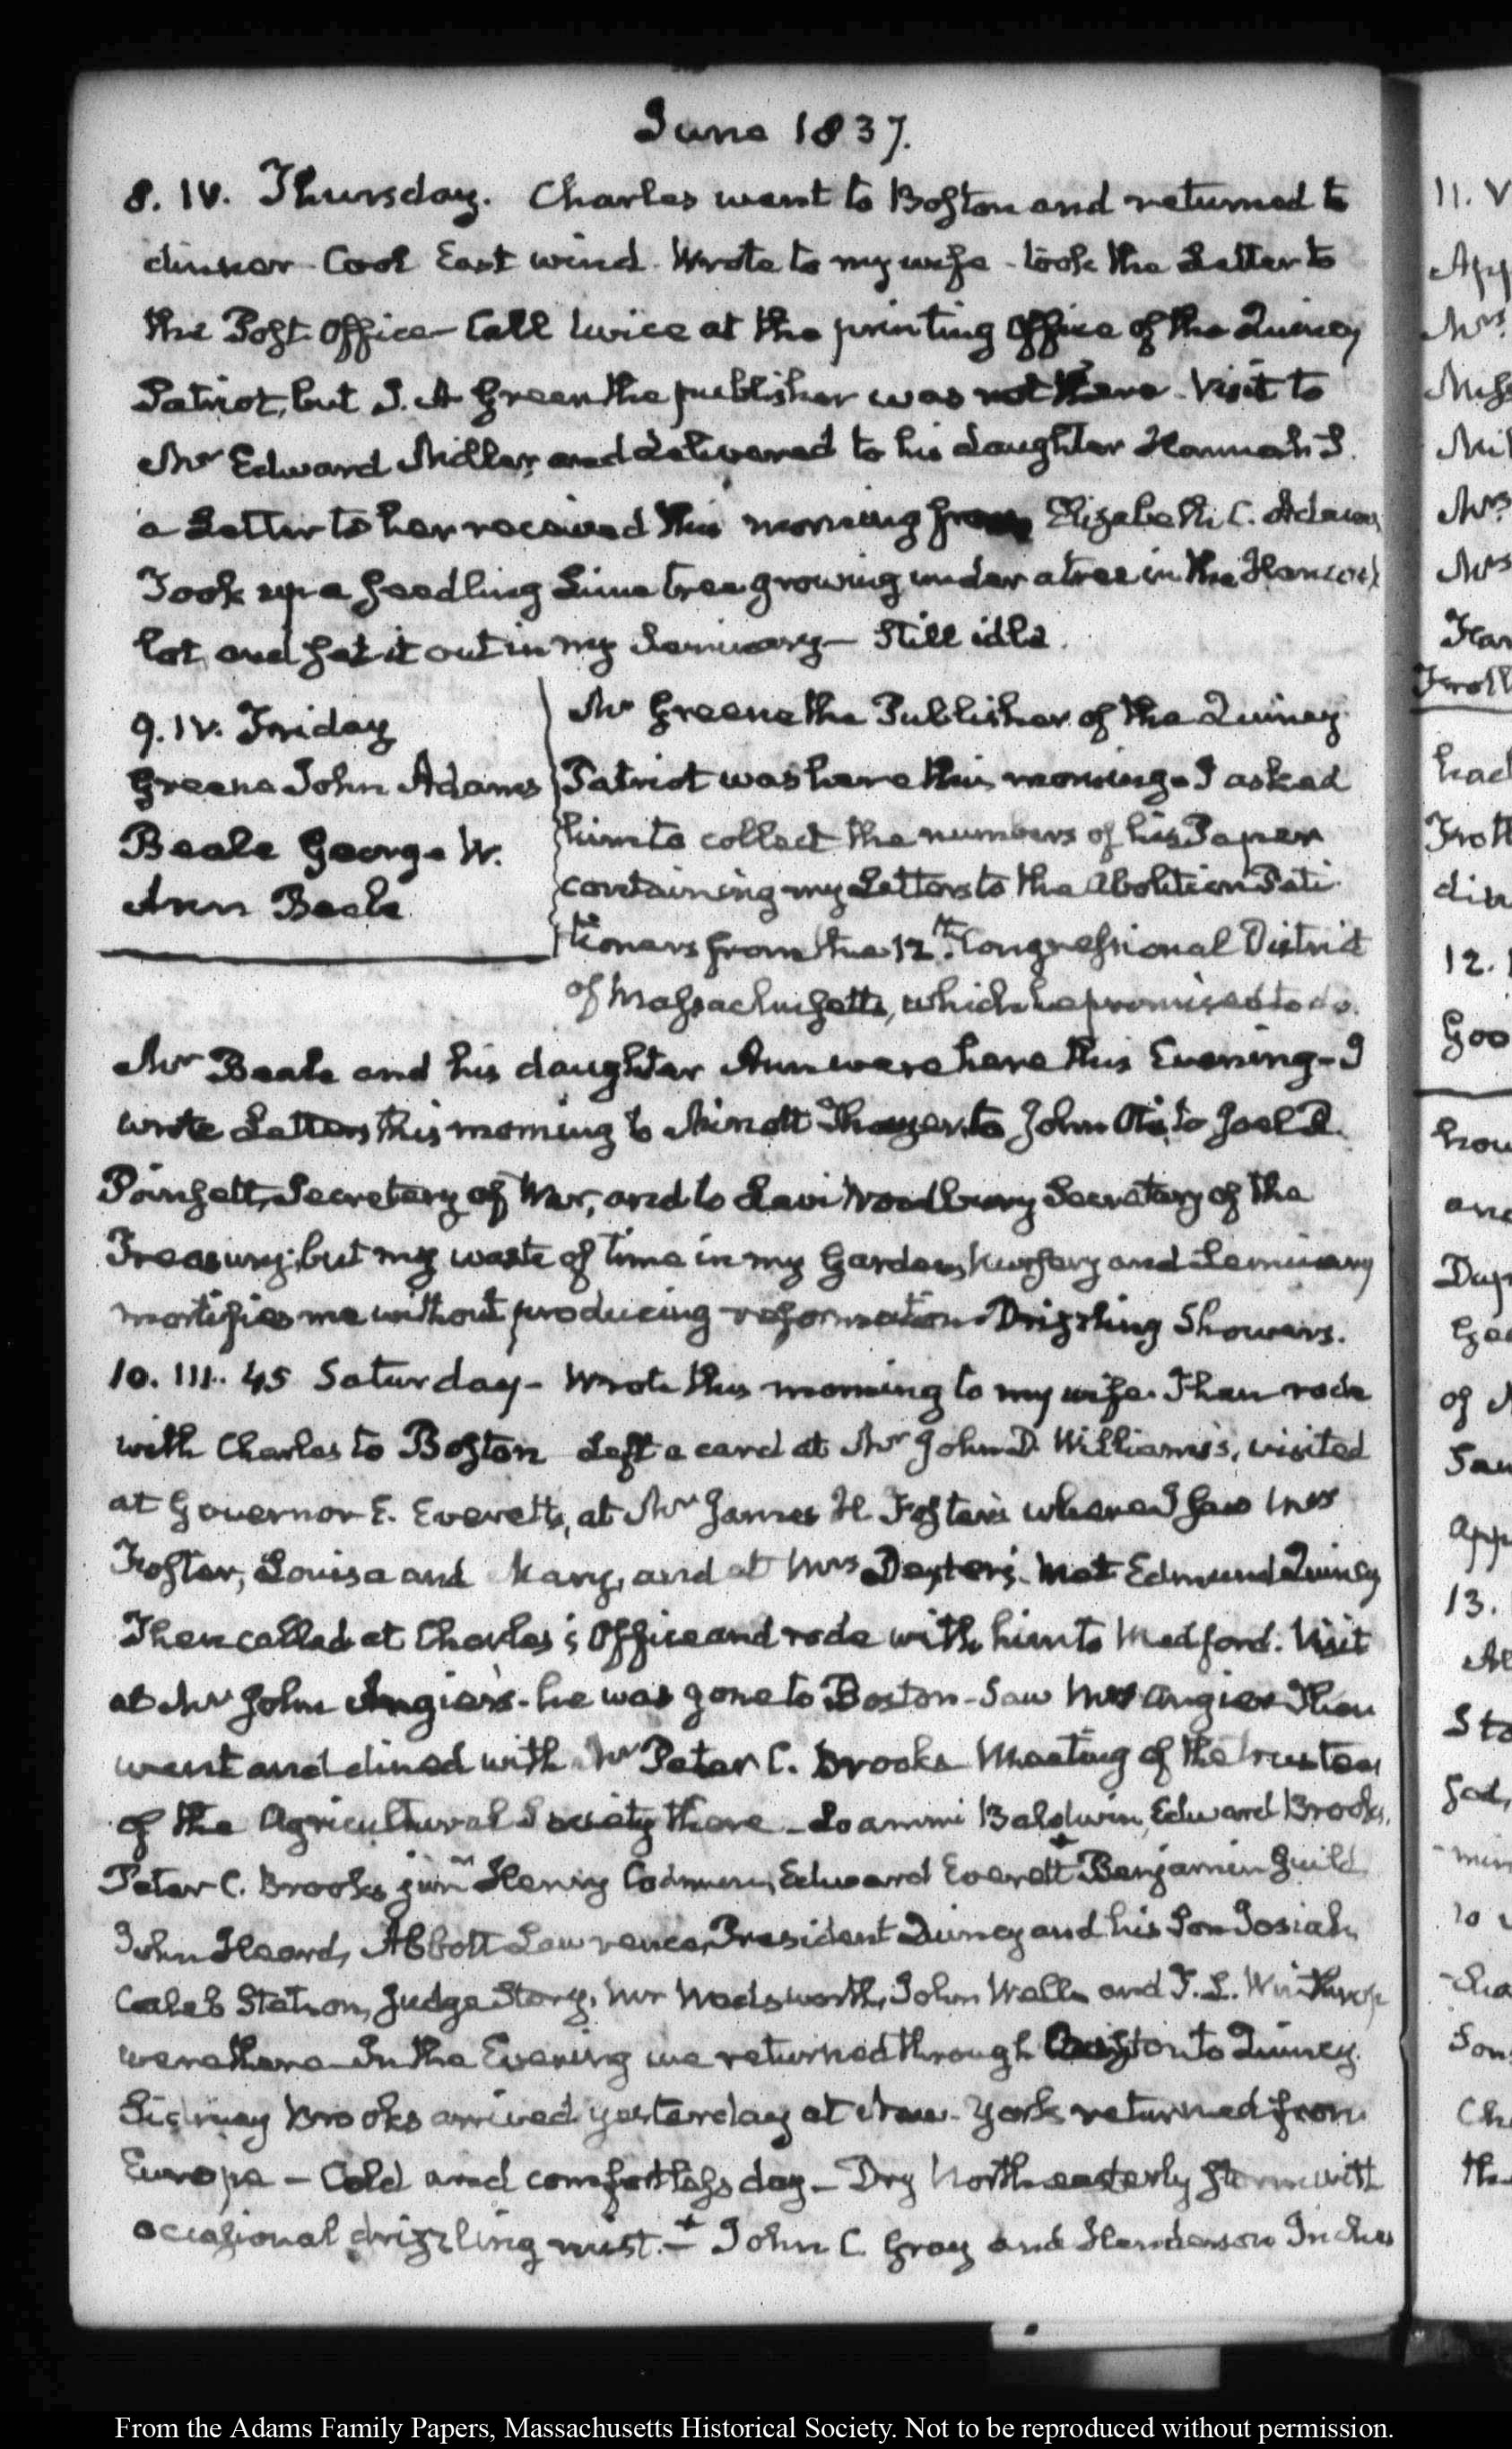 June 1837.
8. IV. Thursday. Charles went to Boston and returned to
dinner - Cool East wind. Wrote to my wife - took the Letter to
the Post Office - Call twice at the printing Office of the Quincy
Patriot, but J. A Green the publisher was not there. Visit to
Mr Edward Miller, and delivered to his daughter Hannah J.
a Letter to her received this morning from Elizabeth C. Adams
Took up a seedling Lime tree growing under a tree in the Hancock
lot, and set it out in my Seminary - Still idle.
9. IV. Friday
Greene John Adams
Beale George W.
Ann Beale
Mr Greene the Publisher of the Quincy
Patriot was here this morning - I asked
him to collect the numbers of his Paper
containing my Letters to the Abolition Peti-
tioners from the 12th Congressional District
of Massachusetts, which he promised to do.
Mr Beale and his daughter Ann were here this Evening - I
wrote Letters this morning to Minott Thayer, to John Otis, to Joel R.
Poinsett, Secretary of War, and to Levi Woodbury Secretary of the
Treasury; but my waste of time in my Garden, Nursery and Seminary
mortifies me without producing reformation. Drizzling Showers.
10. III. 45 Saturday - Wrote this morning to my wife. Then rode
with Charles to Boston Left a card at Mr John D. Williams's, visited
at Governor E. Everett's, at Mr James H. Foster's where I saw Mrs
Foster, Louisa and Mary, and at Mrs Dexter's. Met Edmund Quincy
Then called at Charles's Office and rode with him to Medford. Visit
at Mr John Angier's - he was gone to Boston - Saw Mrs Angier Then
went and dined with Mr Peter C. Brooks Meeting of the trustees
of the Agricultural Society there - Loammi Baldwin, Edward Brooks,
Peter C. Brooks junr Henry Codman, Edward Everett + Benjamin Guild
John Heard, Abbott Lawrence, President Quincy and his Son Josiah,
Caleb Stetson, Judge Story, Mr Wadsworth, John Welles and T. L. Winthrop
were there - In the Evening we returned through to Quincy.
Sidney Brooks arrived yesterday at New-York returned from
Europe - Cold and comfortless day - Dry Northeasterly storm with
occasional drizzling mist. - + John C. Gray and Henderson Inches
11. V
App
Mrs
Miss
Mil
Mrs
Mrs
Har
Froth
had
Froth
din
12.
Goo
how
and
Dup
Geo
of
Sau
app
13.
Al
Sto
God,
min
to
Cha
Son
Ch
the
From the Adams Family Papers, Massachusetts Historical Society. Not to be reproduced without permission.